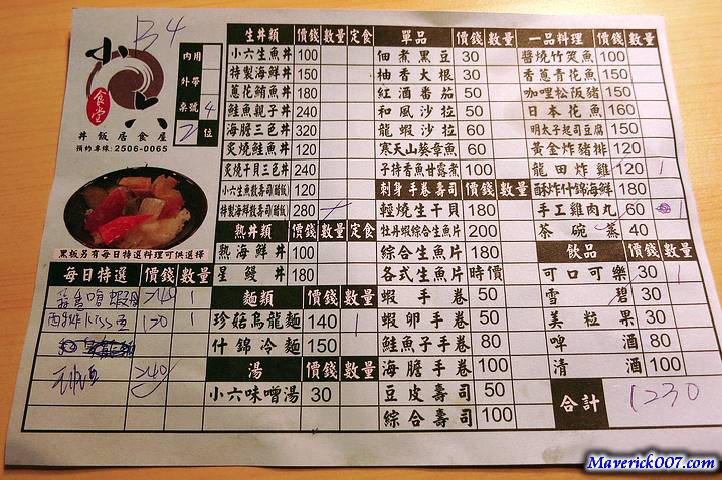 B4
小六
食堂
丼飯居食屋
預約專線:2506-0065
內用
外帶
桌號 4
2 位
黑板另有每日特選料理可供選擇
每日特選 價錢 數量
240 1
130 1
240
生丼類 價錢 數量 定食
小六生魚丼 100
特製海鮮丼 150
蔥花鮪魚丼 180
鮭魚親子丼 240
海膽三色丼 320
炙燒鮭魚丼 120
炙燒干貝三色丼 240
小六生魚散壽司(醋飯) 120
特製海鮮散壽司(醋飯) 280
熟丼類 價錢 數量 定食
熟海鮮丼 100
星鰻丼 180
麵類 價錢 數量
珍菇烏龍麵 140 1
什錦冷麵 150
湯 價錢 數量
小六味噌湯 30
單品 價錢 數量
佃煮黑豆 30
柚香大根 30
紅酒番茄 50
和風沙拉 50
龍蝦沙拉 60
寒天山葵章魚 60
子持香魚甘露煮 100
刺身手卷壽司 價錢 數量
輕燒生干貝 180
牡丹蝦綜合生魚片 200
綜合生魚片 180
各式生魚片 時價
蝦手卷 50
蝦卵手卷 50
鮭魚子手卷 80
海膽手卷 100
豆皮壽司 50
綜合壽司 100
一品料理 價錢 數量
醬燒竹筴魚 100
香蔥青花魚 150
咖哩松阪豬 150
日本花魚 160
明太子起司豆腐 150
黃金炸豬排 120
龍田炸雞 120 1
酥炸什錦海鮮 180
手工雞肉丸 60 1
茶碗蒸 40
飲品 價錢 數量
可口可樂 30 1
雪碧 30
美粒果 30
啤酒 80
清酒 100
合計 1230
Maverick007.com